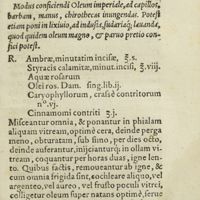 Modus conficiendi Oleum imperiale, ad capillos,
barbam, manus, chirothecas inungendas. Potest
etiam poni in lixiuio, ad indusia, sudaria lauanda,
quod quidem oleum magno, & paruo pretio con-
fici potest.
R. Ambræ, minutatim incisæ, ʒ. s.
Styracis calamitæ, minut. incisi, ʒ. viij.
Aquæ rosarum
Olei ros. Dam. sing. lib. ij.
Caryophyllorum, crassè contritorum
n°. vj.
Cinnamomi contriti ʒ. j.
Misceantur omnia, & ponantur in phialam
aliquam vitream, optimè cera, deinde perga
meno, obturatam, sub fimo, per dies octo,
deinde auferantur, iniicianturq́; in ollam vi-
tream, coquantur per horas duas, igne len-
to. Quibus factis, remoueantur ab igne, &
cum omnia frigida sint, cochleare aliquo, vel
argenteo, vel aureo, vel frusto poculi vitrei,
colligatur optimum oleum, ponaturq́; in va-